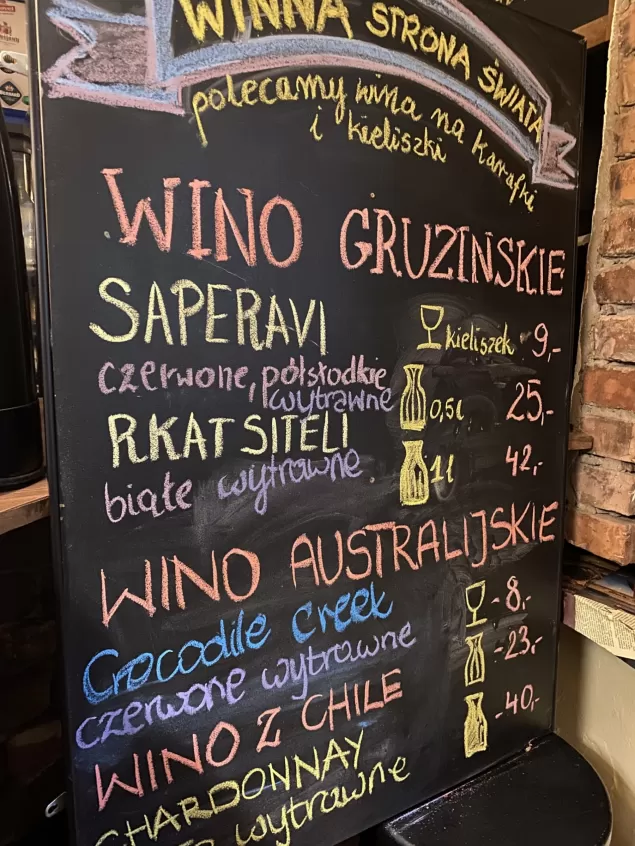 WINNA STRONA ŚWIATA
polecamy wina na karafki
i kieliszki
WINO GRUZIŃSKIE
SAPERAVI
kieliszek 9,-
czerwone, półsłodkie
wytrawne
0,5l 25,-
RKATSITELI
1l 42,-
białe wytrawne
WINO AUSTRALIJSKIE
Crocodile Creek
-8,-
czerwone wytrawne
-23,-
WINO Z CHILE
-40,-
CHARDONNAY
wytrawne